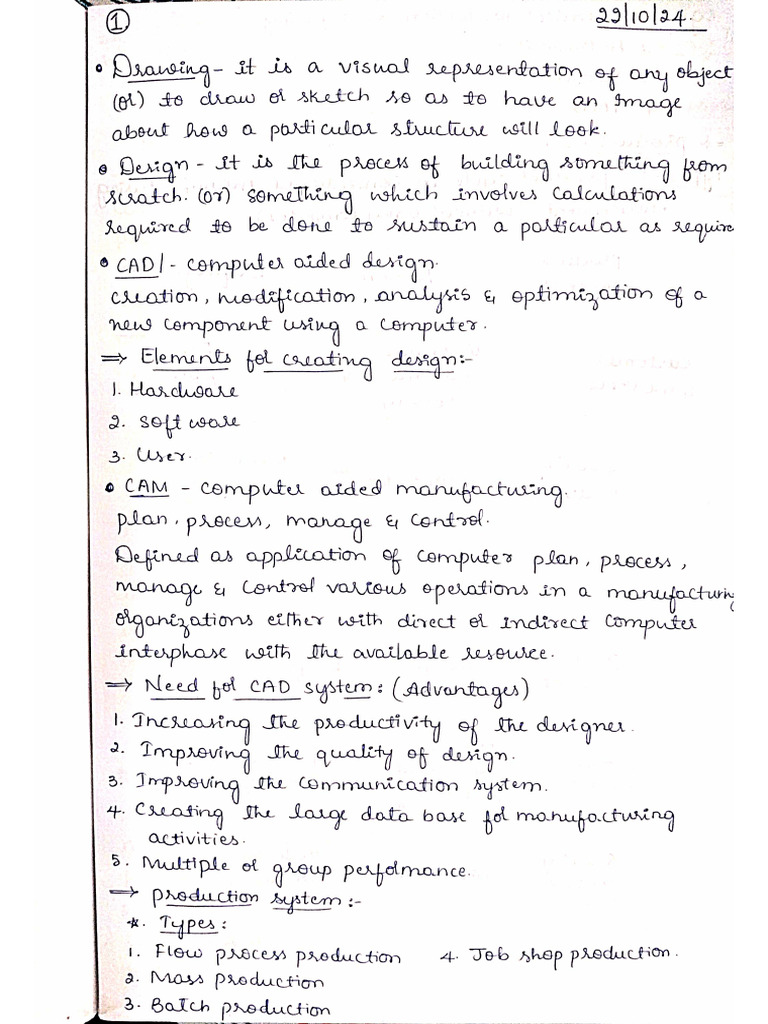 1
29/10/24.
• Drawing - it is a visual representation of any object
(or) to draw or sketch so as to have an image
about how a particular structure will look.
• Design - it is the process of building something from
scratch. (or) something which involves calculations
required to be done to sustain a particular as require
• CAD/ - computer aided design.
creation, modification, analysis & optimization of a
new component using a computer.
⇒ Elements for creating design:-
1. Hardware
2. Soft ware
3. User.
• CAM - computer aided manufacturing.
plan, process, manage & control.
Defined as application of computer plan, process,
manage & control various operations in a manufacturing
organizations either with direct or indirect computer
interphase with the available resource.
⇒ Need for CAD system: (Advantages)
1. Increasing the productivity of the designer.
2. Improving the quality of design.
3. Improving the communication system.
4. Creating the large data base for manufacturing
activities.
5. Multiple or group performance.
⇒ production system:-
*. Types:
1. Flow process production 4. Job shop production.
2. Mass production
3. Batch production